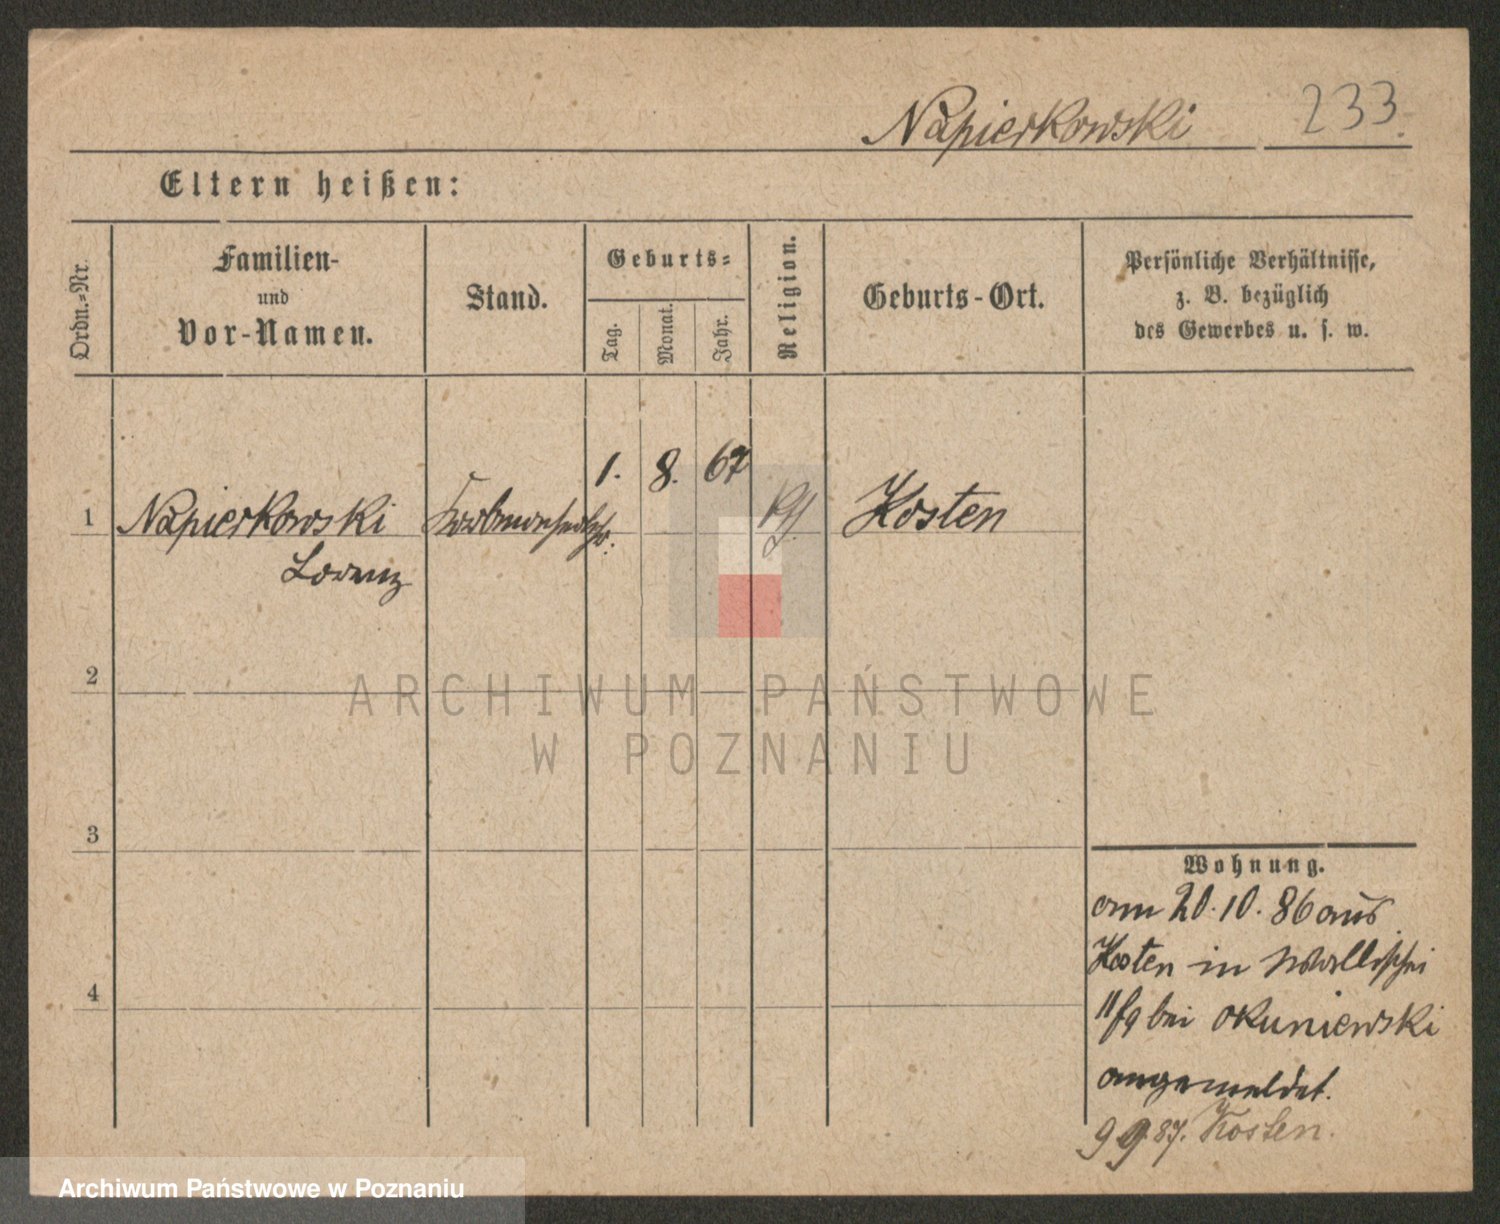 Napierkowski 233.
Eltern heißen:
Ordn.-Nr.
Familien-
und
Vor-Namen.
Stand.
Geburts-
Tag.
Monat.
Jahr.
Religion.
Geburts-Ort.
Persönliche Verhältnisse,
z. B. bezüglich
des Gewerbes u. s. w.
1. 8. 67
1 Napierkowski Kosten
Lorenz
2
ARCHIWUM PAŃSTWOWE
W POZNANIU
3
4
Wohnung.
am 20.10.86 aus
Kosten in Wallischei
bei Okuniewski
angemeldet.
9 9. 87. Kosten.
Archiwum Państwowe w Poznaniu